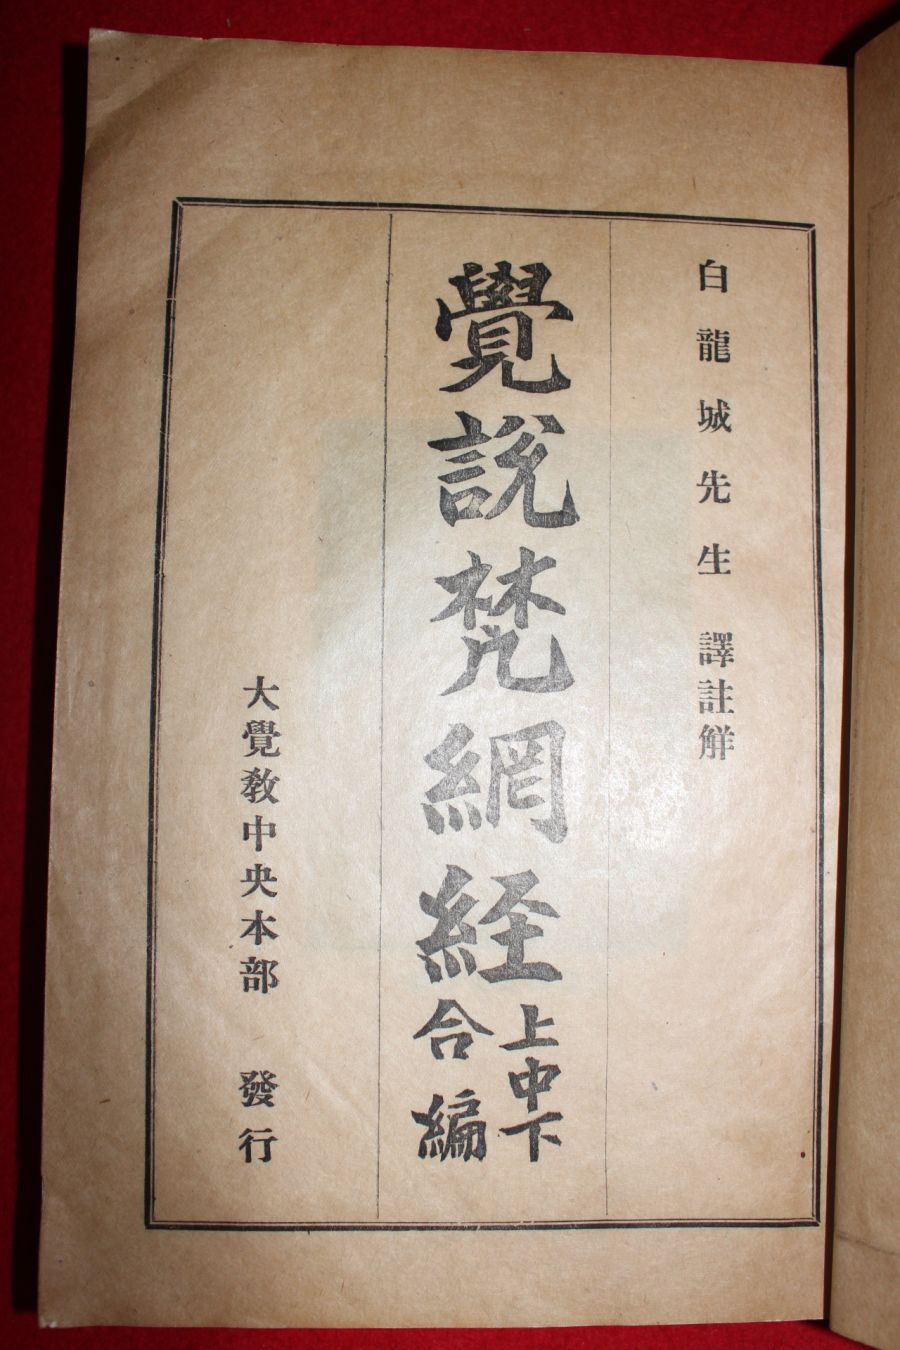 白龍城先生 譯註觧
覺說梵網経
上中下
合編
大覺敎中央本部 發行